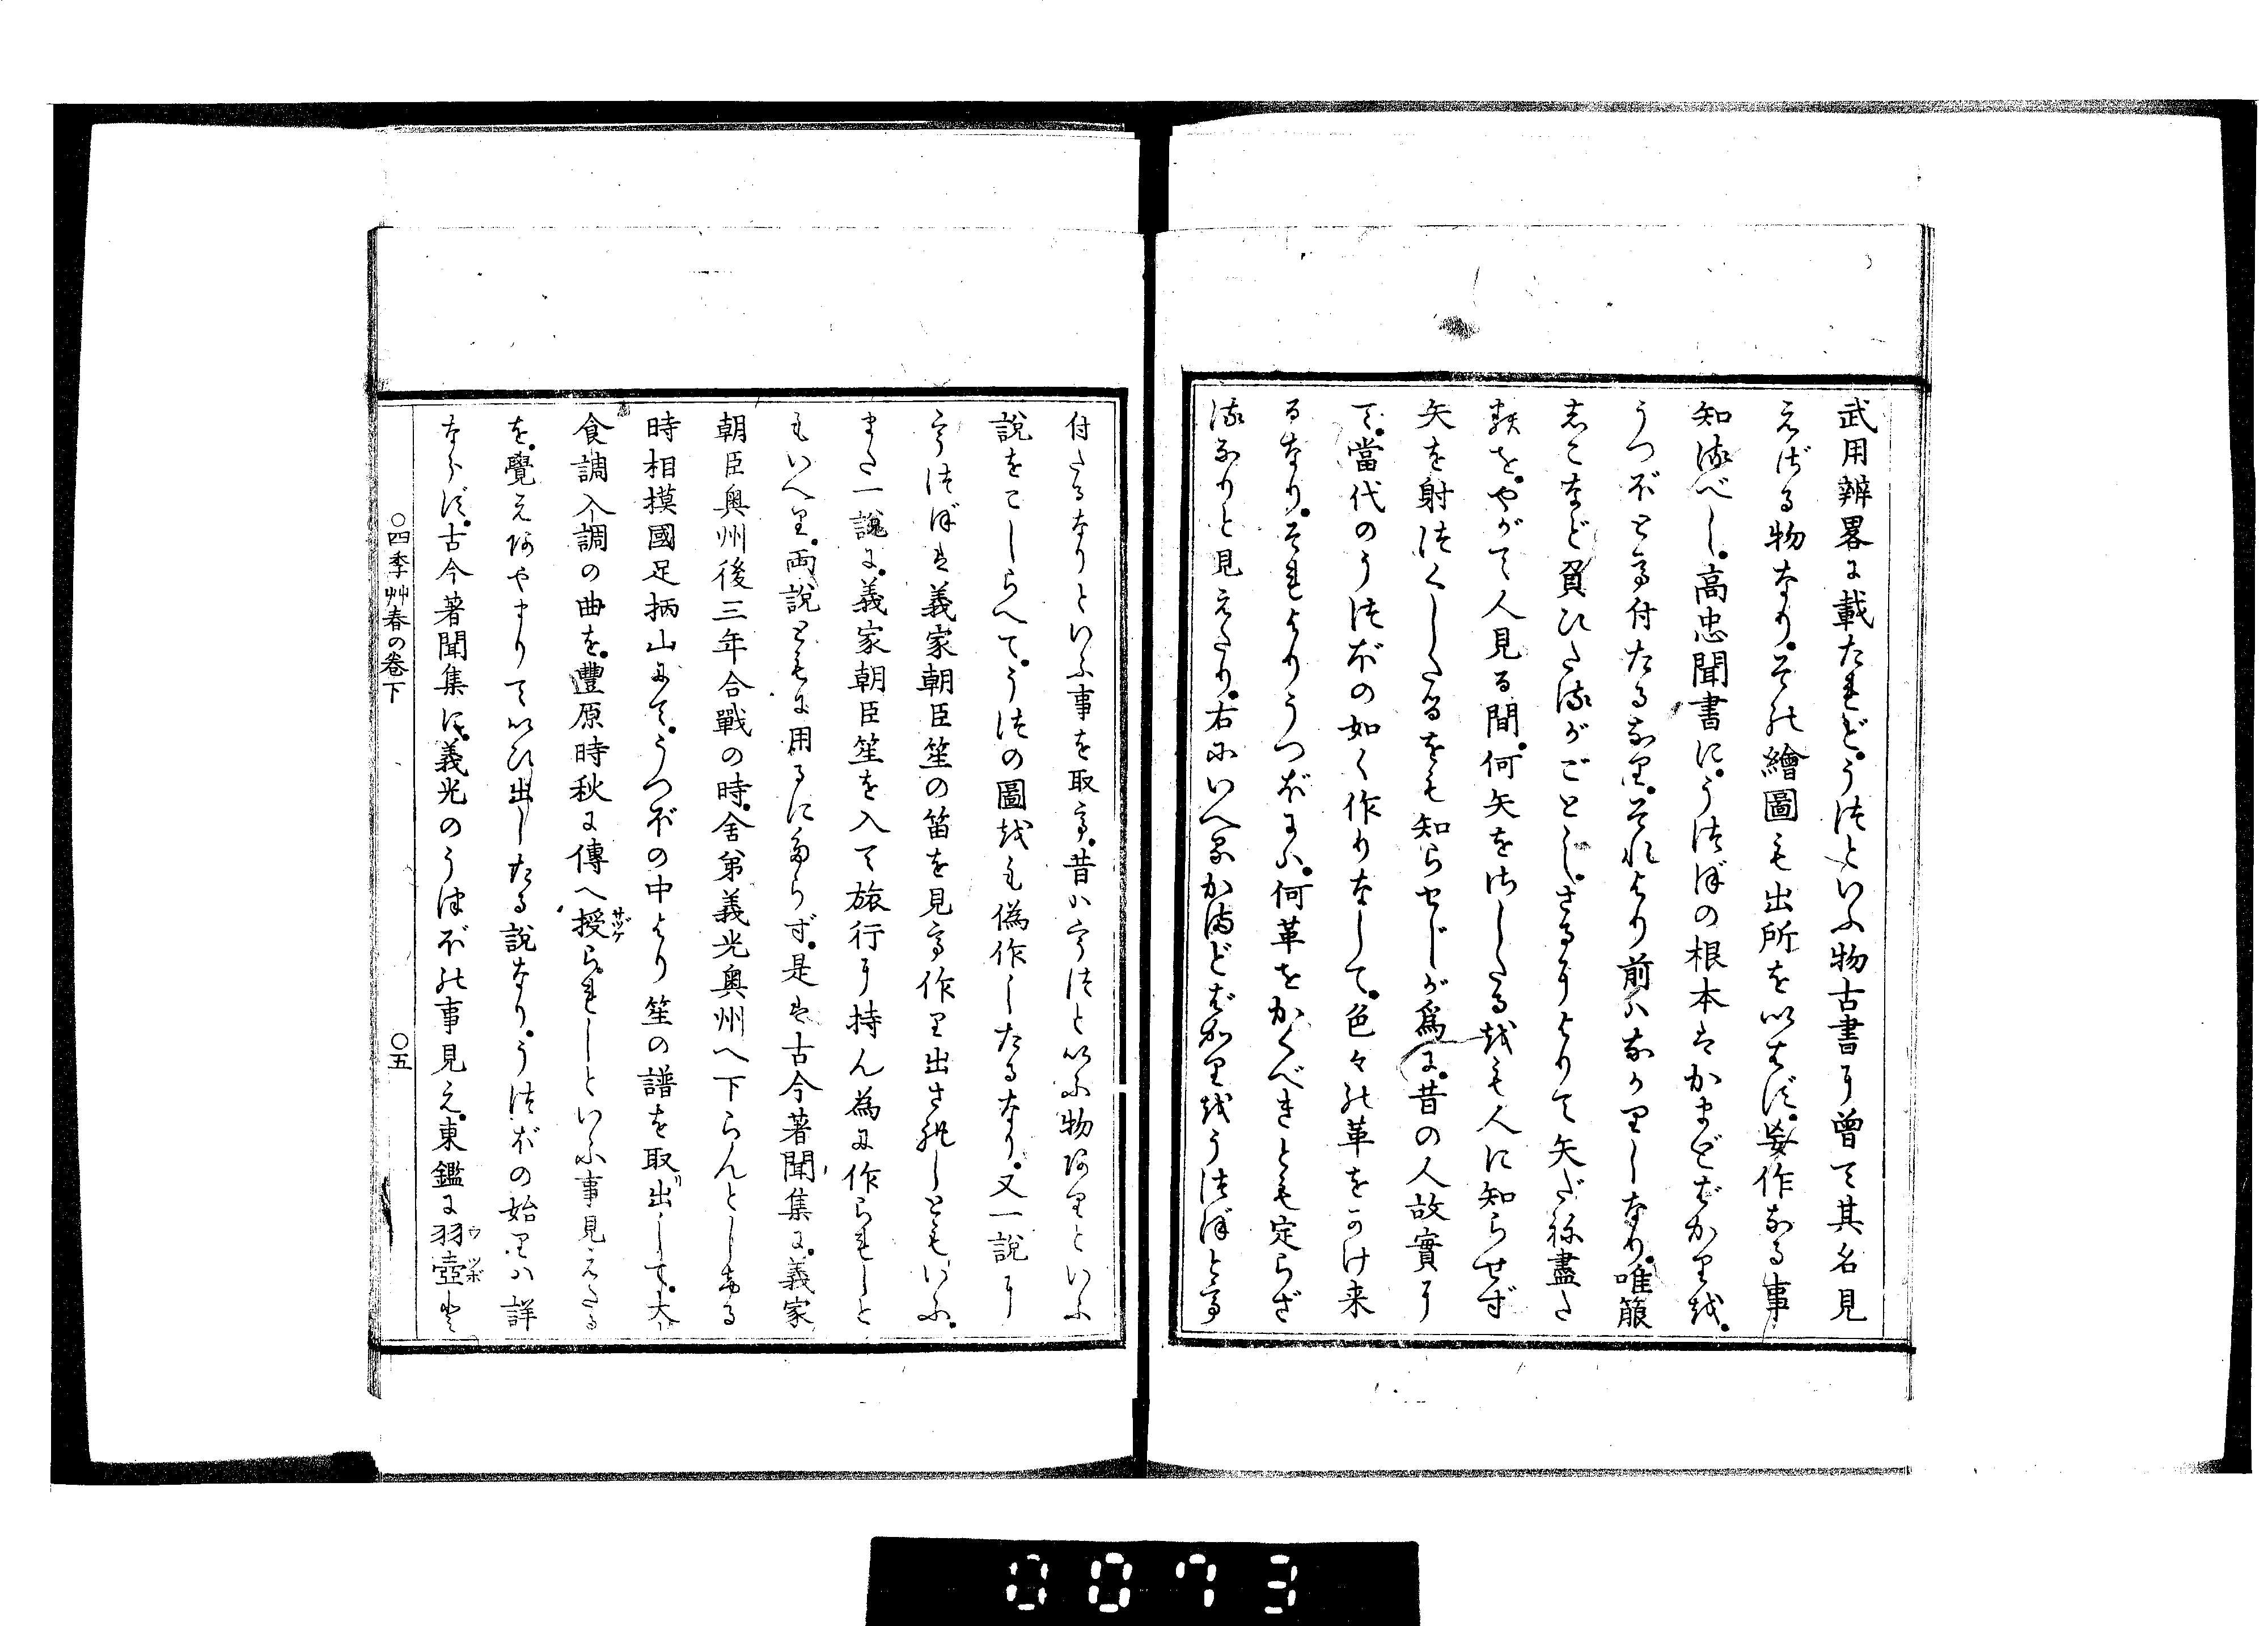 武用辨畧に載たれど。うつといふ物古書に曾て其名見
えざる物なり。その繪圖も出所をいはず。妄作なる事
知るべし。高忠聞書に。うつぼの根本はかまどばかりを。
うつぼとて付たるなり。それより前はなかりしなり。唯箙
しこなど負ひたるがごとし。さるによりて矢だね盡た
數を。やがて人見る間。何矢をさしたるをも人に知らせず
矢を射つくしたるをも知らせじが爲に。昔の人故實に
て。當代のうつぼの如く作りなして。色々の革をかけ来
るなり。それよりうつぼには。何革をかくべきとも定らざ
るなりと見えたり。右にいへるかまどばかりをうつぼとて
付たるなりといふ事を取て。昔はうつといふ物ありといふ
説をこしらへて。うつの圖をも偽作したるなり。又一説に
うつぼは義家朝臣笙の笛を見て作り出されしともいふ。
また一説に。義家朝臣笙を入て旅行に持ん為に作られしと
もいへり。両説ともに用るにたらず。是は古今著聞集に。義家
朝臣奥州後三年合戰の時。舎弟義光奥州へ下らんとしける
時相摸國足柄山にて。うつぼの中より笙の譜を取出して。大
食調入調の曲を。豐原時秋に傳へ授られしといふ事見えたる
を。覺えあやまりていひ出したる説なり。うつぼの始りは詳
ならず。古今著聞集に。義光のうつぼの事見え。東鑑に羽壺と
サヅケ
ウツボ
○四季艸春の巻下
○五
0073